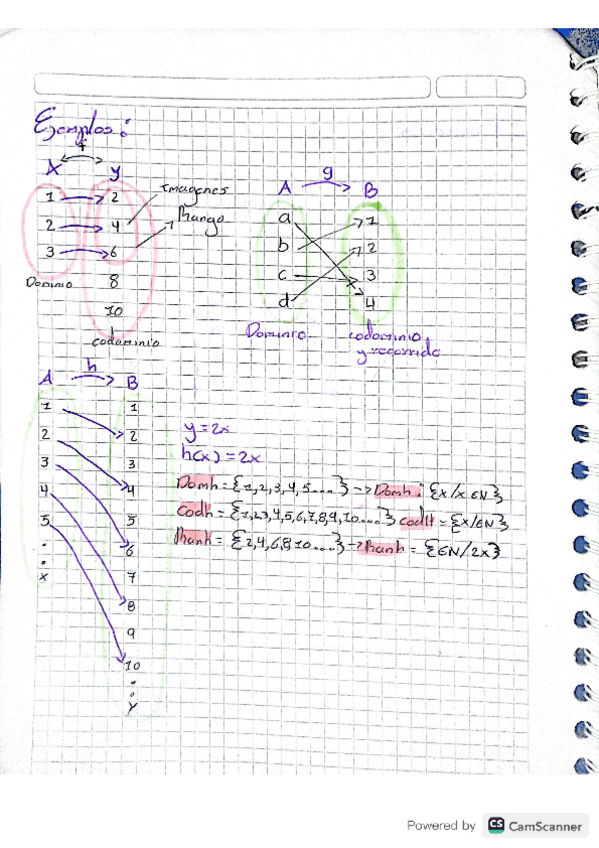 Ejemplos:
f
X y
1 2
2 4
3 6
8
10
Imagenes
Rango
Dominio
codominio
g
A B
a 1
b 2
c 3
d 4
Dominio
codominio
y recorrido
h
A B
1 1
2 2
3 3
4 4
5 5
. 6
. 7
x 8
9
10
.
.
y
y = 2x
h(x) = 2x
Domh = {1,2,3,4,5....} → Domh: {x/x ∈ N}
Codh = {1,2,3,4,5,6,7,8,9,10....} codH = {x/∈N}
Ranh = {2,4,6,8,10....} → Ranh = {∈N/2x}
Powered by CS CamScanner